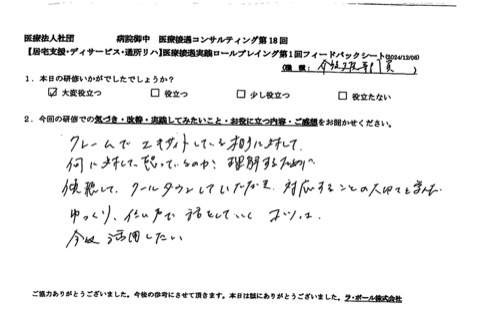 医療法人社団 病院御中 医療接遇コンサルティング第18回
【居宅支援・デイサービス・通所リハ】医療接遇実践ロールプレイング第1回フィードバックシート(2024/12/06)
(職種: 介護支援専門員 )
1. 本日の研修いかがでしたでしょうか?
☑ 大変役立つ □ 役立つ □ 少し役立つ □ 役立たない
2. 今回の研修での気づき・改善・実践してみたいこと・お役に立つ内容・ご感想をお聞かせください。
クレームで エキサイトしている相手に対して、
何に対して怒っているのか? 理解するために
傾聴して、クールダウンしていただき、対応することの大切さを学んだ
ゆっくり、低い声で 話をしていく
今後 活用したい
ご協力ありがとうございました。今後の参考にさせて頂きます。本日は誠にありがとうございました。ラ・ポール株式会社